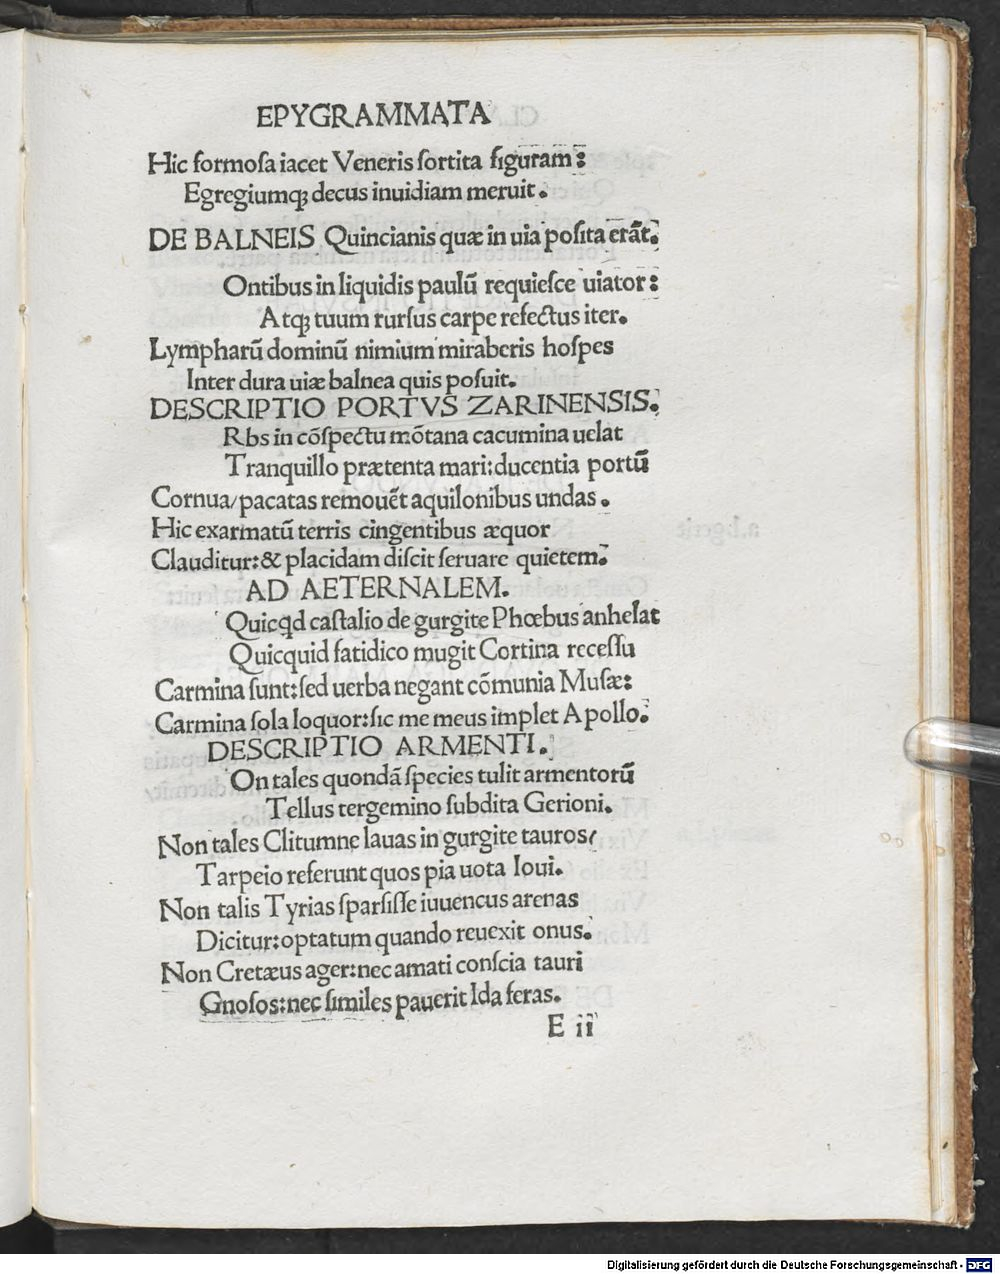 EPYGRAMMATA
Hic formoſa iacet Veneris ſortita figuram:
Egregiumqꝫ decus inuidiam meruit.
DE BALNEIS Quincianis quæ in uia poſita erãt.
Ontibus in liquidis paulũ requieſce uiator:
Atqꝫ tuum rurſus carpe refectus iter.
Lympharũ dominũ nimium miraberis hoſpes
Inter dura uiæ balnea quis poſuit.
DESCRIPTIO PORTVS ZARINENSIS.
Rbs in cõſpectu mõtana cacumina uelat
Tranquillo prætenta mari:ducentia portũ
Cornua/pacatas remouẽt aquilonibus undas.
Hic exarmatũ terris cingentibus æquor
Clauditur:& placidam diſcit ſeruare quietem.
AD AETERNALEM.
Quicꝗd caſtalio de gurgite Phœbus anhelat
Quicquid fatidico mugit Cortina receſſu
Carmina ſunt:ſed uerba negant cõmunia Muſæ:
Carmina ſola loquor:ſic me meus implet Apollo.
DESCRIPTIO ARMENTI.
On tales quondã ſpecies tulit armentorũ
Tellus tergemino ſubdita Gerioni.
Non tales Clitumne lauas in gurgite tauros/
Tarpeio referunt quos pia uota Ioui.
Non talis Tyrias ſparſiſſe iuuencus arenas
Dicitur:optatum quando reuexit onus.
Non Cretæus ager:nec amati conſcia tauri
Gnoſos:nec ſimiles pauerit Ida feras.
E ii
Digitalisierung gefördert durch die Deutsche Forschungsgemeinschaft - DFG